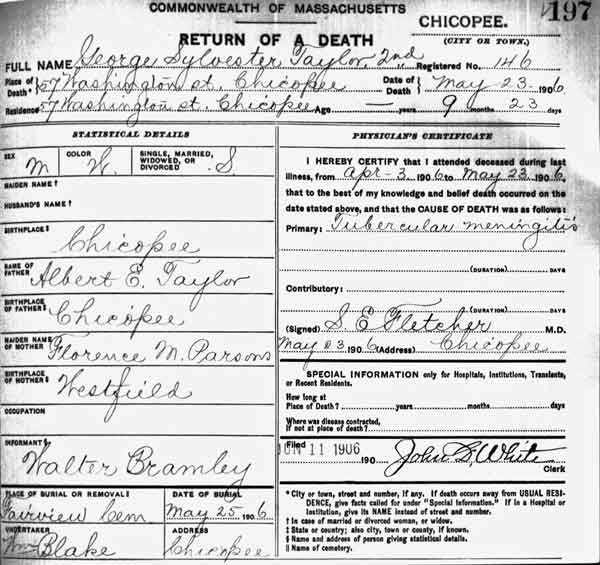 COMMONWEALTH OF MASSACHUSETTS
197
CHICOPEE.
RETURN OF A DEATH
(CITY OR TOWN.)
FULL NAME George Sylvester Taylor 2nd Registered No. 146
Place of Death* 57 Washington st. Chicopee Date of Death May 23 1906
Residence 57 Washington st. Chicopee Age — years 9 months 23 days
STATISTICAL DETAILS
SEX M COLOR W. SINGLE, MARRIED, WIDOWED, OR DIVORCED S.
MAIDEN NAME †
HUSBAND'S NAME †
BIRTHPLACE ‡ Chicopee
NAME OF FATHER Albert E. Taylor
BIRTHPLACE OF FATHER ‡ Chicopee
MAIDEN NAME OF MOTHER Florence M. Parsons
BIRTHPLACE OF MOTHER ‡ Westfield
OCCUPATION
INFORMANT § Walter Bramley
PLACE OF BURIAL OR REMOVAL ‖ DATE OF BURIAL
Fairview Cem May 25 1906
UNDERTAKER ADDRESS
Wm Blake Chicopee
PHYSICIAN'S CERTIFICATE
I HEREBY CERTIFY that I attended deceased during last
illness, from Apr-3 1906 to May 23 1906,
that to the best of my knowledge and belief death occurred on the
date stated above, and that the CAUSE OF DEATH was as follows:
Primary: Tubercular meningitis
(DURATION) DAYS
Contributory:
(DURATION) DAYS
(Signed) S. E. Fletcher M.D.
May 23 1906 (Address) Chicopee
SPECIAL INFORMATION only for Hospitals, Institutions, Transients,
or Recent Residents.
How long at
Place of Death? years months days
Where was disease contracted,
If not at place of death?
Filed JUN 11 1906
190 John D. White
Clerk
* City or town, street and number, if any. If death occurs away from USUAL RESI-
DENCE, give facts called for under "Special Information." If in a Hospital or
Institution, give its NAME instead of street and number.
† In case of married or divorced woman, or widow.
‡ State or country; also city, town or county, if known.
§ Name and address of person giving statistical details.
‖ Name of cemetery.